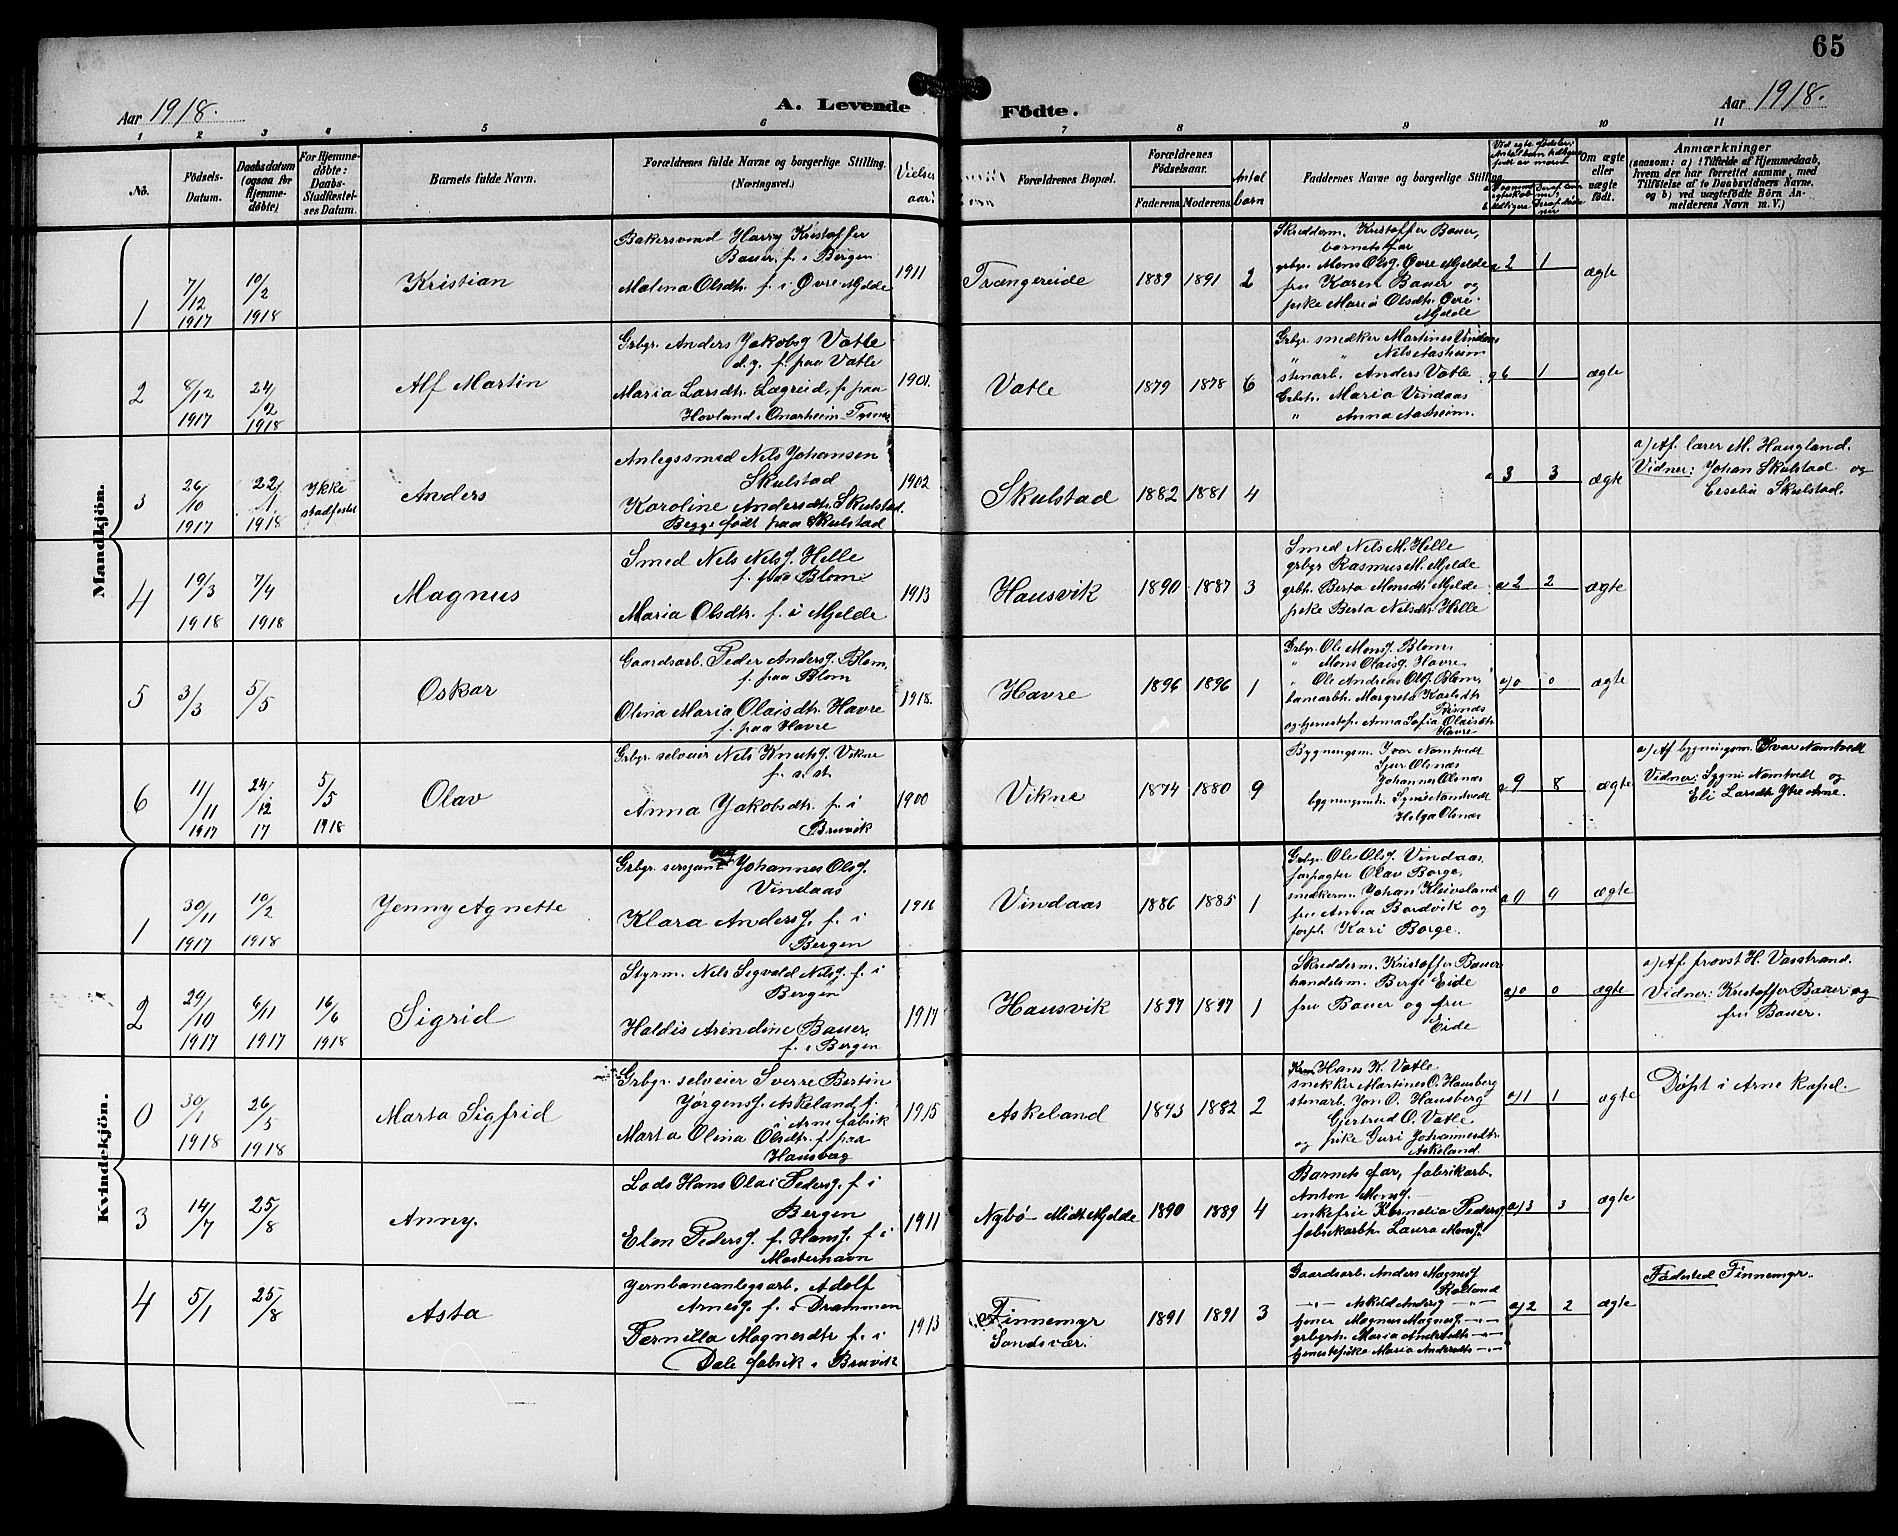 65
Aar 1918.
A. Levende
Födte.
Aar 1918.
1 2 3 4 5 6 7 8 9 10 11
No.
Födsels-
Datum.
Daabsdatum
(ogsaa for
Hjemme-
döbte)
For Hjemme-
döbte:
Daabs-
Stadfæstel-
ses Datum.
Barnets fulde Navn.
Forældrenes fulde Navne og borgerlige Stilling.
(Næringsvei.)
Vielses
aar.
Forældrenes Bopæl.
Forældrenes
Födselsaar.
Faderens. Moderens.
Antal
barn
Faddernes Navne og borgerlige Stilling
Om ægte
eller
uægte
födt.
Anmærkninger
(saasom: a) i Tilfælde af Hjemmedaab,
hvem der har forrettet samme, med
Tilföielse af to Daabsvidners Navne,
og b) ved uægtefödte Börn An-
melderens Navn m. V.)
Mandkjön.
1
7/12
1917
10/2
1918
Kristian
Bakersvend Harry Kristoffer
Bauer, f. i Bergen
Malena Olsdtr. f. i Øvre Mjelde
1911
Trængereide
1889 1891 2
Skredderm. Kristoffer Bauer,
barnets far
grbgr. Mons Olsg. Øvre Mjelde
fru Karen Bauer og
pike Maria Olsdtr. Øvre
Mjelde
a 2 1
ægte
2
8/12
1917
24/2
1918
Alf Martin
Grbgr. Anders Jakobsg Vatle
d.y. f. paa Vatle
Maria Larsdtr. Lægreid, f. paa
Hovland i Onarheim - Tysnes
1901.
Vatle
1879 1878 6
Grbgr. snedker Martines Vindaas
" " Nils Aasheim
stenarb. Anders Vatle
Grbrh. Maria Vindaas
" Anna Aasheim.
a 6 1
ægte
3
26/10
1917
22/1
1918
Ikke
stadfestet
Anders
Anlegssmed Nils Johansen
Skulstad
Karoline Andersdtr. Skulstad.
Begge født paa Skulstad
1902
Skulstad
1882 1881 4
a 3 3
ægte
a) Af lærer M. Haugland.
Vidner: Johan Skulstad og
Eeselia Skulstad.
4
19/3
1918
7/4
1918
Magnus
Smed Nels Nelsg. Helle
f. paa Blom
Maria Olsdtr. f. i Mjelde
1913
Hausvik
1890 1887 3
Smed Nels M. Helle
grbgr Rasmus M. Mjelde
grbh. Berta Monsdtr. Mjelde
pike Berta Nilsdtr. Helle
a 2 2
ægte
5
3/3
5/5
Oskar
Gaardsarb. Peder Andersg. Blom,
f. paa Blom
Olina Maria Olaisdtr. Havre
f. paa Havre
1918.
Havre
1896 1896 1
Grbgr. Ole Monsg. Blom,
" Mons Olaisg. Havre,
" Ole Andreas Olsg. Blom,
banearbh. Margreta Karlsdtr
Risnes
og tjenestep. Anna Sofia Olaisdtr.
Havre
a) 0 0
ægte
6
11/11
1917
24/12
17
5/5
1918
Olav
Grbgr. selveier Nels Knutsg. Vikne
f. s. st.
Anna Jakobsdtr. f. i
Bruvik
1900
Vikne
1874 1880 9
Bygningsm. Ivar Namtvedt
Sjur Olsnæs
Johannes Olsnæs
bygningsmh. Sygni Namtvedt
Helga Olsnæs
a 9 8
ægte
a) Af bygningsm. Ivar Namtvedt
Vidner: Sygni Namtvedt og
Eli Larsdtr Ytre Arne.
Kvindekjön.
1
30/11
1917
10/2
1918
Jenny Agnette
Grbgr. sersjant og Johannes Olsg.
Vindaas
Klara Andersg. f. i
Bergen
1916
Vindaas
1886 1885 1
Grbgr. Ole Olsg. Vindaas,
forpagter Olav Borge,
snekkerm. Johan Kleiveland
fru Anna Bordvik og
forph. Kari Borge.
a 0 0
ægte
2
29/10
1917
6/11
1917
16/6
1918
Sigrid
Styrm. Nils Sigvald Nilsg. f. i
Bergen
Haldis Arindine Bauer,
f. i Bergen
1917
Hausvik
1897 1897 1
Skredderm. Kristoffer Bauer
handelsm. Berge Eide
fru Bauer og fru
Eide
a) 0 0
ægte
a) Af provst H. Vasstrand.
Vidner: Kristoffer Bauer og
fru Bauer.
0
30/1
1918
26/5
1918
Marta Sigfrid
Grbgr. selveier Sverre Bertin
Jörgensg. Askeland f.
i Arne fabrik
Marta Olina Olsdtr. f. paa
Hausberg
1915
Askeland
1893 1882 2
Hans K. Vatle
snekker Martines O. Hausberg
stenarb. Jon O. Hausberg
Gjertrud O. Vatle
og pike Guri Johannesdtr.
Askeland.
a) 1 1
ægte
Døpt i Arne Kapel.
3
14/7
25/8
Anny.
Lods Hans Olai Pedersg. f. i
Bergen
Elen Pedersg. f. Hansg. f. i
Mosterhavn
1911
Nybø - Midt Mjelde
1890 1889 4
Barnets far, fabrikarb.
Anton Monsg. —
enkefru Kornelia Pedersg
fabrikarbh. Laura Monsg.
a) 3 3
ægte
4
5/1
25/8
Asta
Jernbaneanlegsarb. Adolf
Arnesg. f. i Drammen
Pernilla Magnesdtr f. i
Dale fabrik i Bruvik
1913
Finnemgr
Sandsvær.
1891 1891 3
Gaardsarb. Anders Magnesg
Rolland
—"— Askild Andersg —"—
tjener Magnus Magnesg. —"—
grbgrh. Maria Andersdtr —"—
tjenestepike Maria Andersdtr —"—
a) 2 2
ægte
Fødested Finnemgr.